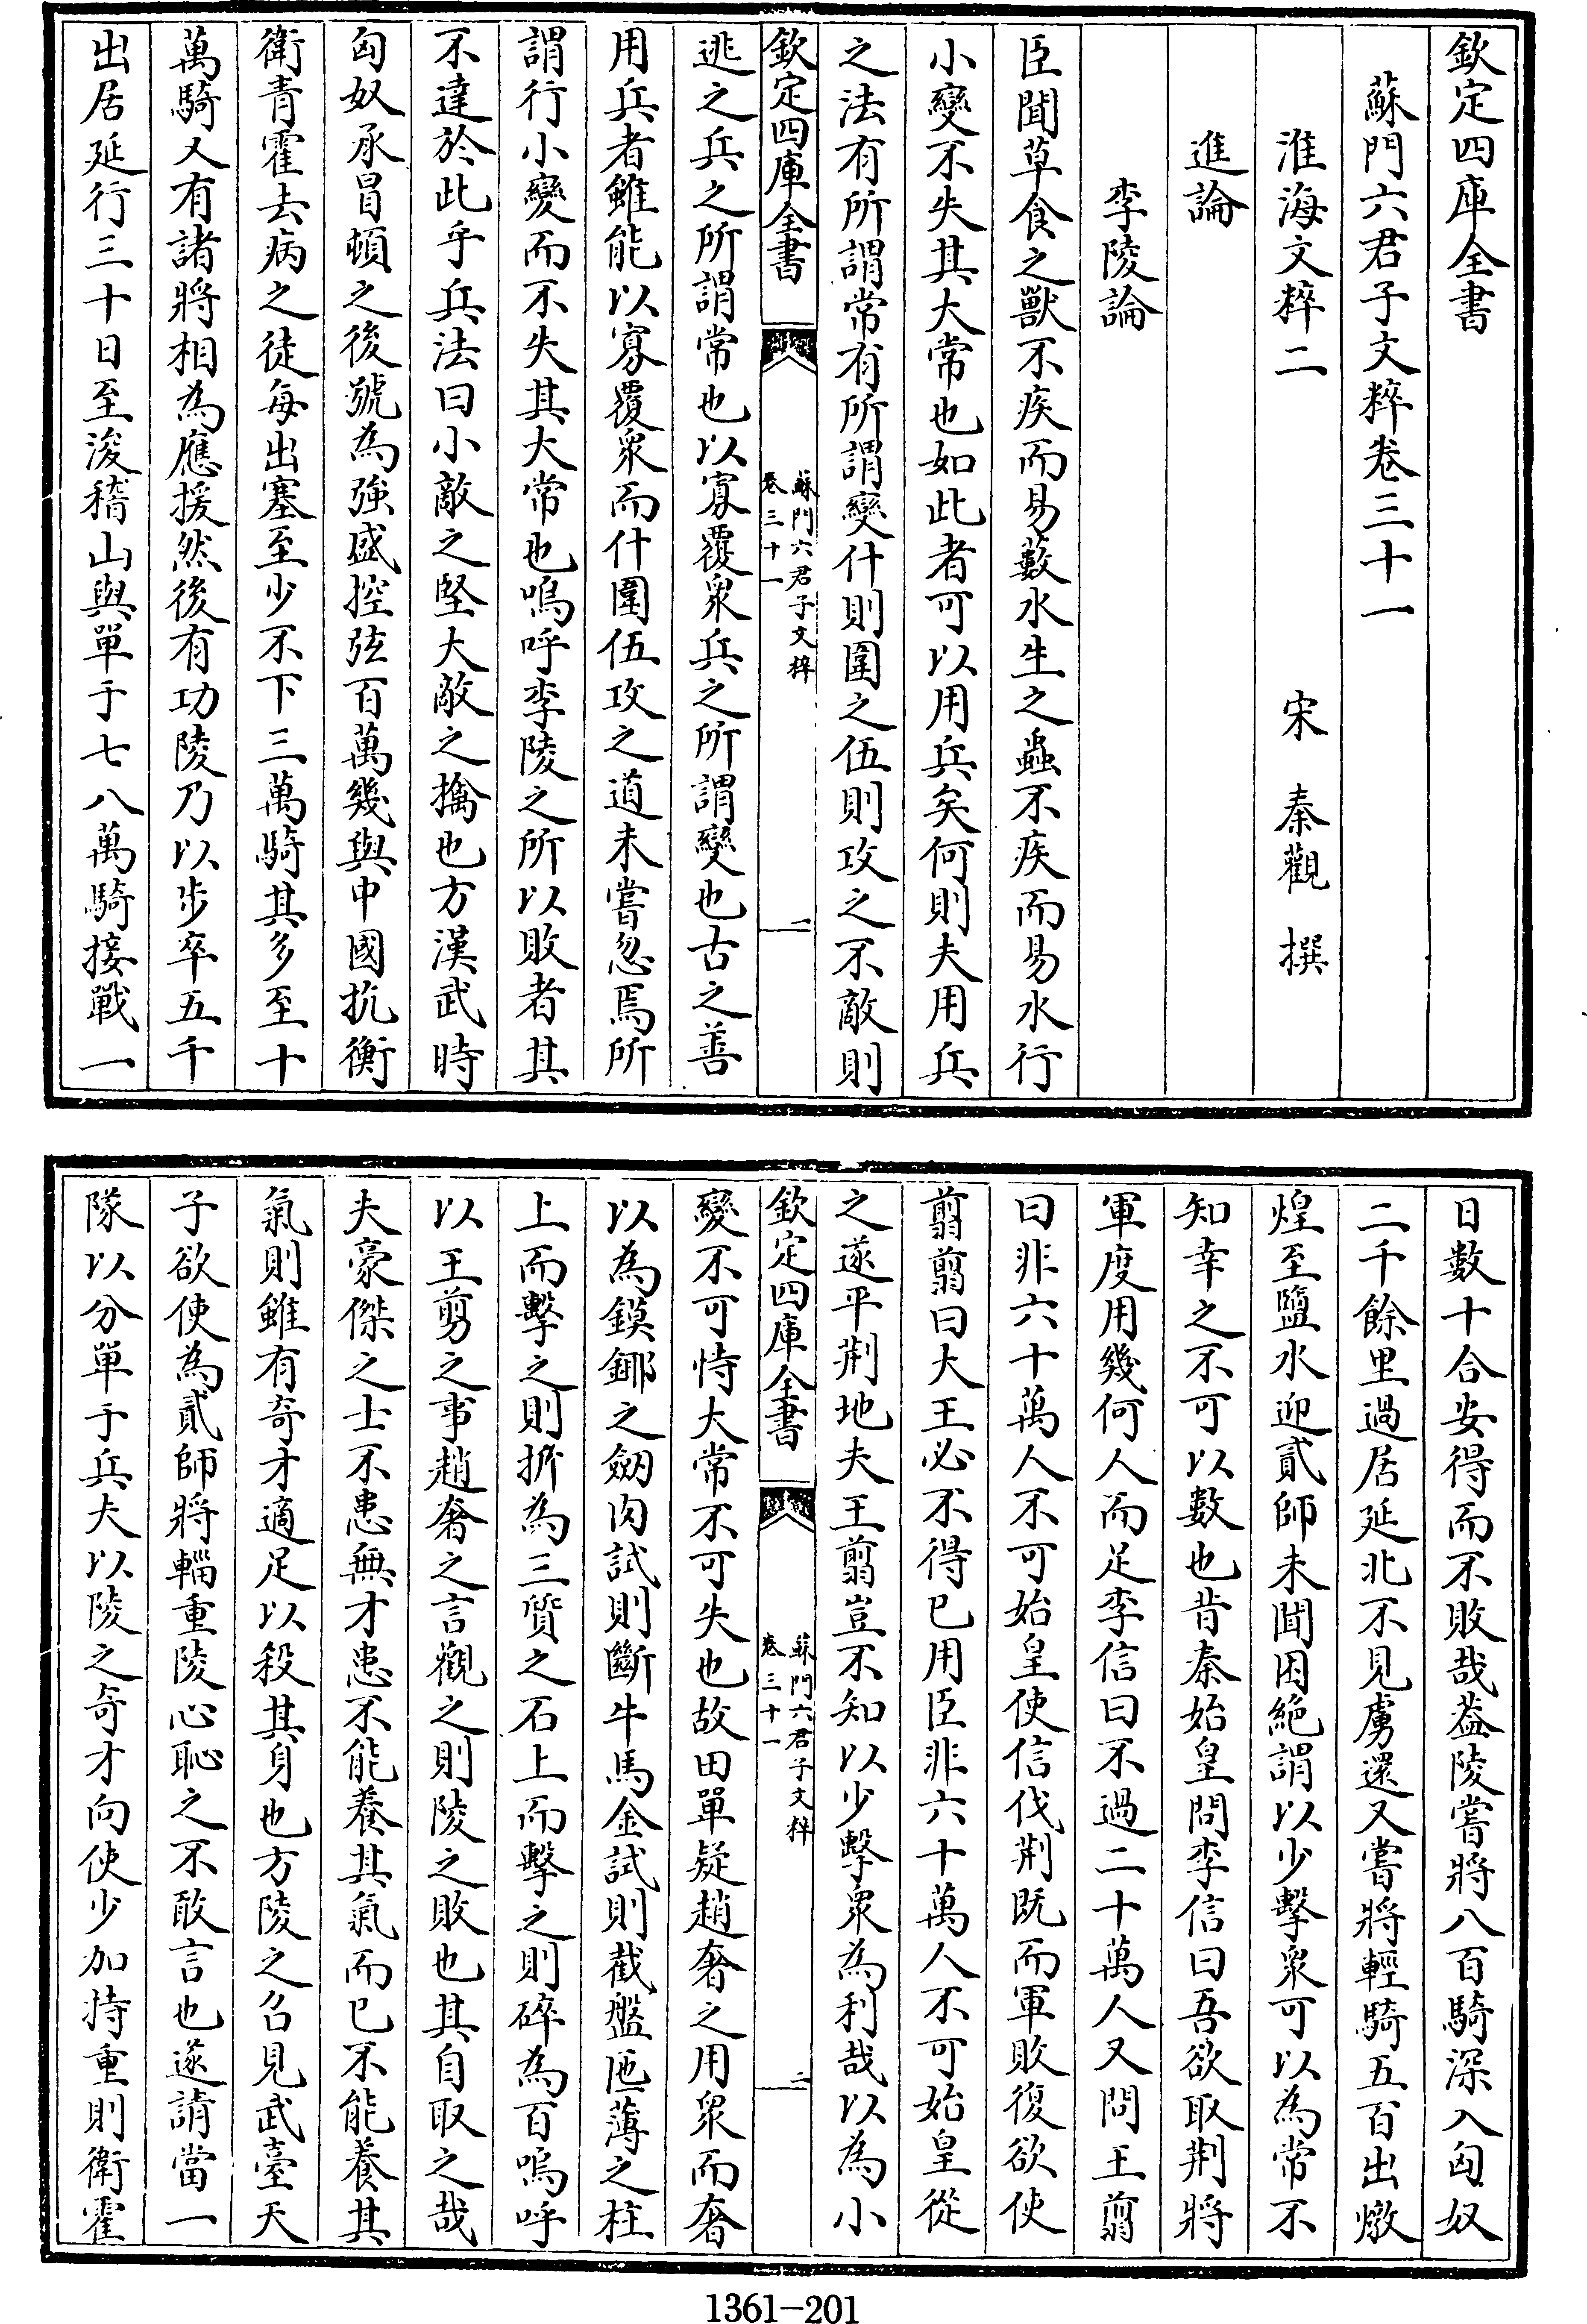 欽定四庫全書
蘇門六君子文粹卷三十一
淮海文粹二　宋　秦觀　撰
進論
李陵論
臣聞草食之獸不疾而易藪水生之蟲不疾而易水行
小變不失其大常也如此者可以用兵矣何則夫用兵
之法有所謂常有所謂變什則圍之伍則攻之不敵則
欽定四庫全書
蘇門六君子文粹
卷三十一
一
逃之兵之所謂常也以寡覆衆兵之所謂變也古之善
用兵者雖能以寡覆衆而什圍伍攻之道未嘗忽焉所
謂行小變而不失其大常也嗚呼李陵之所以敗者其
不達於此乎兵法曰小敵之堅大敵之擒也方漢武時
匈奴承冒頓之後號為強盛控弦百萬幾與中國抗衡
衛青霍去病之徒每出塞至少不下三萬騎其多至十
萬騎又有諸將相為應援然後有功陵乃以步卒五千
出居延行三十日至浚稽山與單于七八萬騎接戰一
日數十合安得而不敗哉葢陵嘗將八百騎深入匈奴
二千餘里過居延北不見虜還又嘗將輕騎五百出燉
煌至鹽水迎貳師未聞困絶謂以少擊衆可以為常不
知幸之不可以數也昔秦始皇問李信曰吾欲取荆將
軍度用幾何人而足李信曰不過二十萬人又問王翦
曰非六十萬人不可始皇使信伐荆既而軍敗復欲使
翦翦曰大王必不得已用臣非六十萬人不可始皇從
之遂平荆地夫王翦豈不知以少擊衆為利哉以為小
欽定四庫全書
蘇門六君子文粹
卷三十一
二
變不可恃大常不可失也故田單疑趙奢之用衆而奢
以為鏌鋣之劒肉試則斷牛馬金試則截盤匜薄之柱
上而擊之則折為三質之石上而擊之則碎為百嗚呼
以王剪之事趙奢之言觀之則陵之敗也其自取之哉
夫豪傑之士不患無才患不能養其氣而已不能養其
氣則雖有奇才適足以殺其身也方陵之召見武臺天
子欲使為貳師將輜重陵心恥之不敢言也遂請當一
隊以分單于兵夫以陵之奇才向使少加持重則衛霍
1361-201